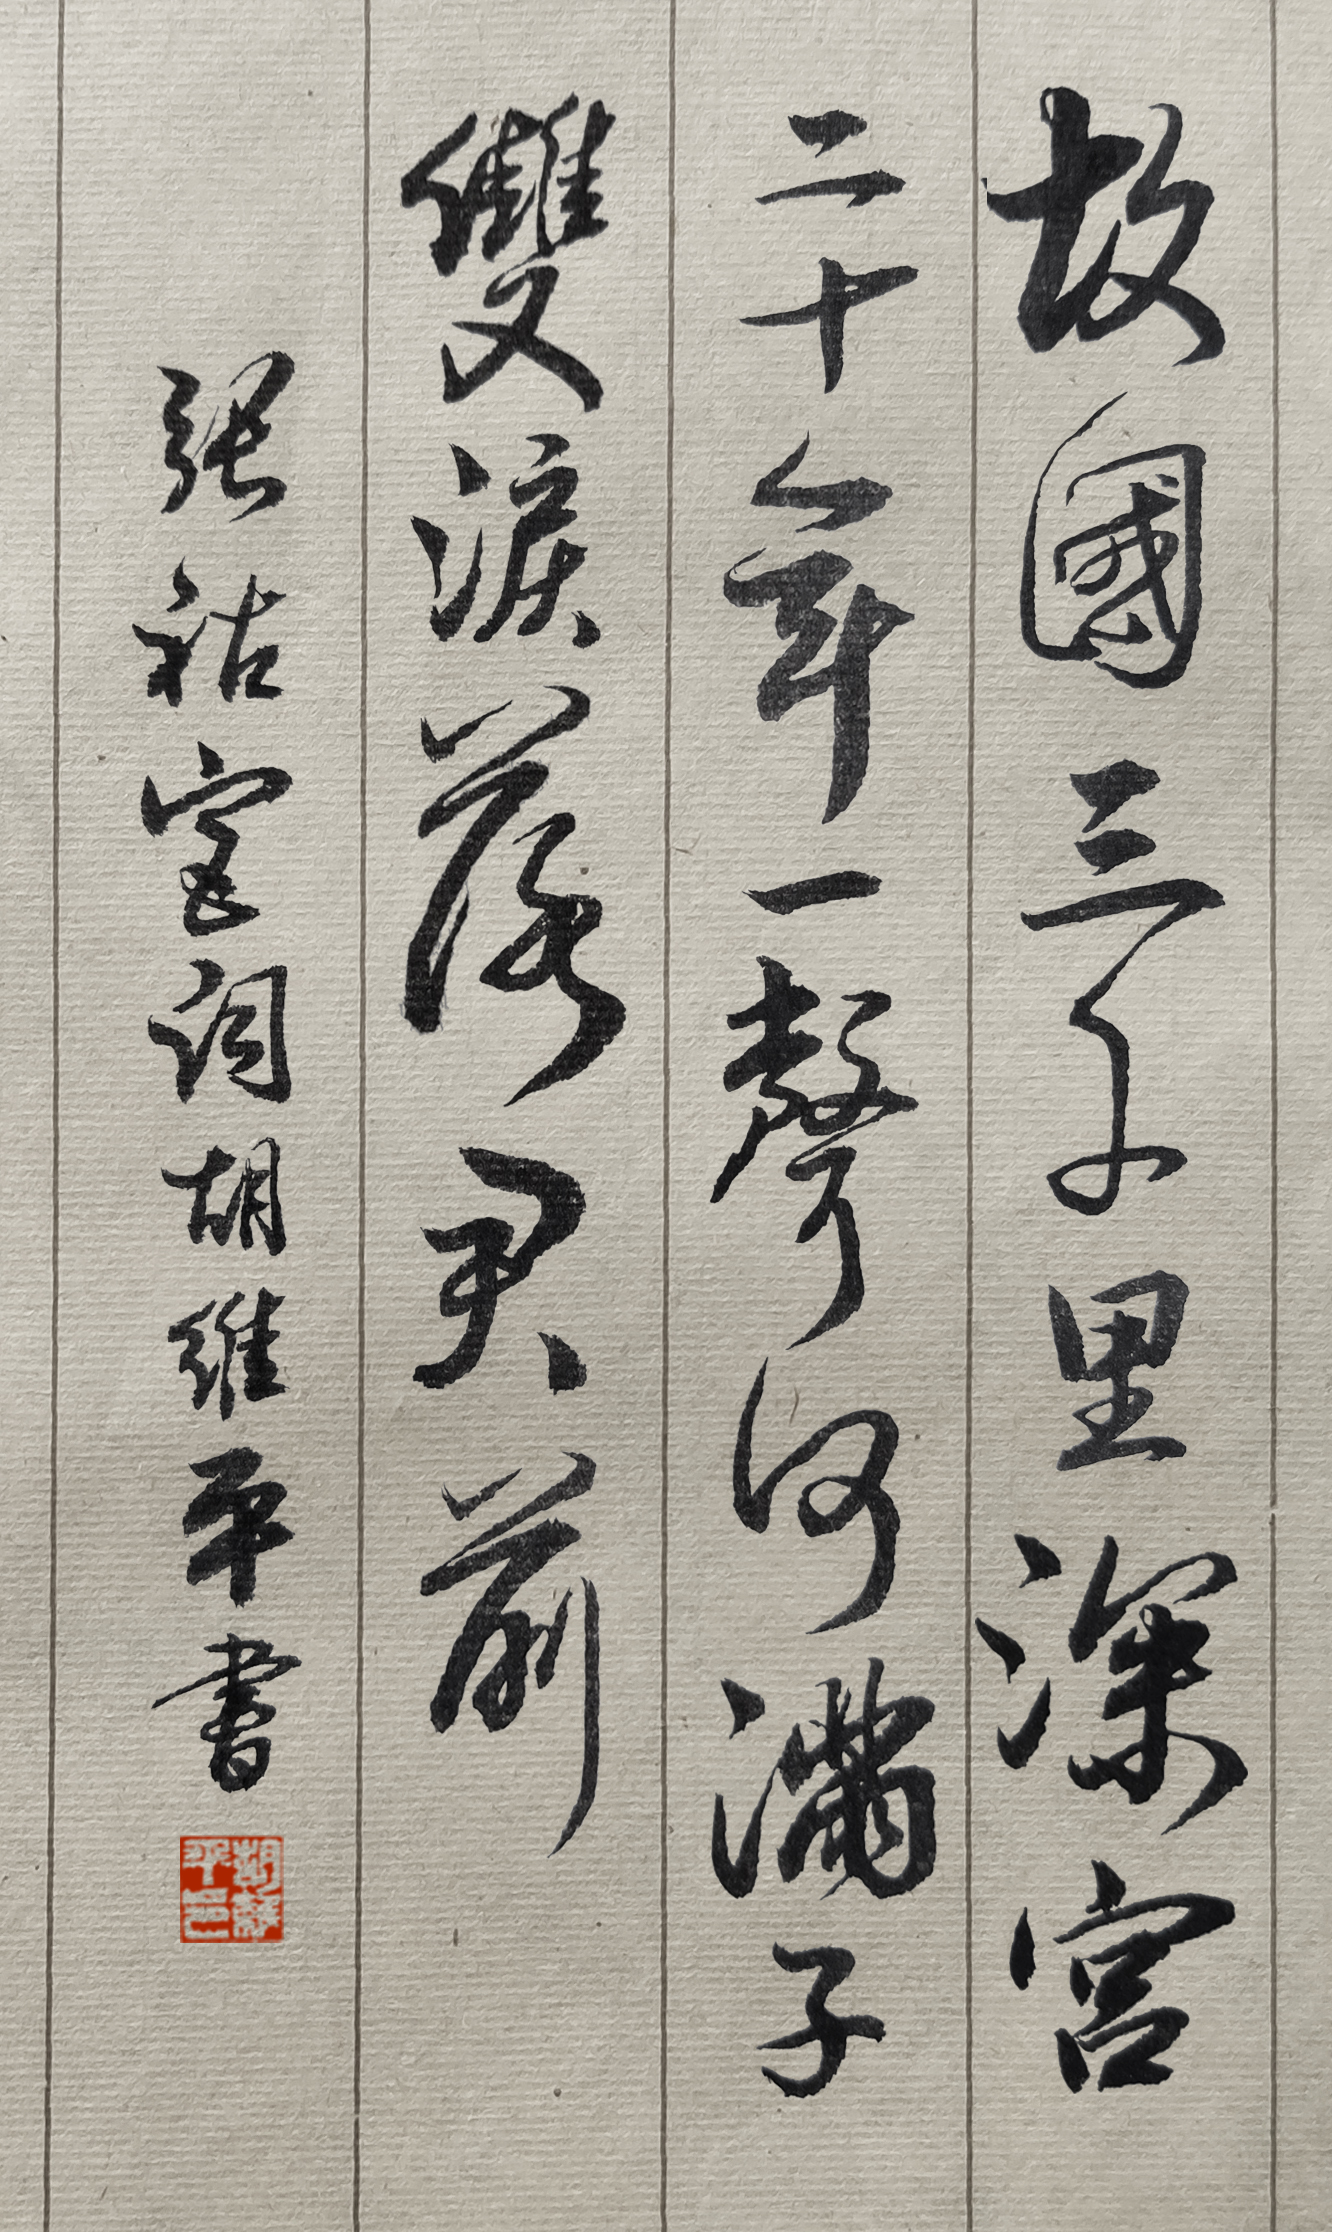 故國三千里深宮
二十年一聲何滿子
雙淚落君前
張祜宮詞胡維平書
胡維平印